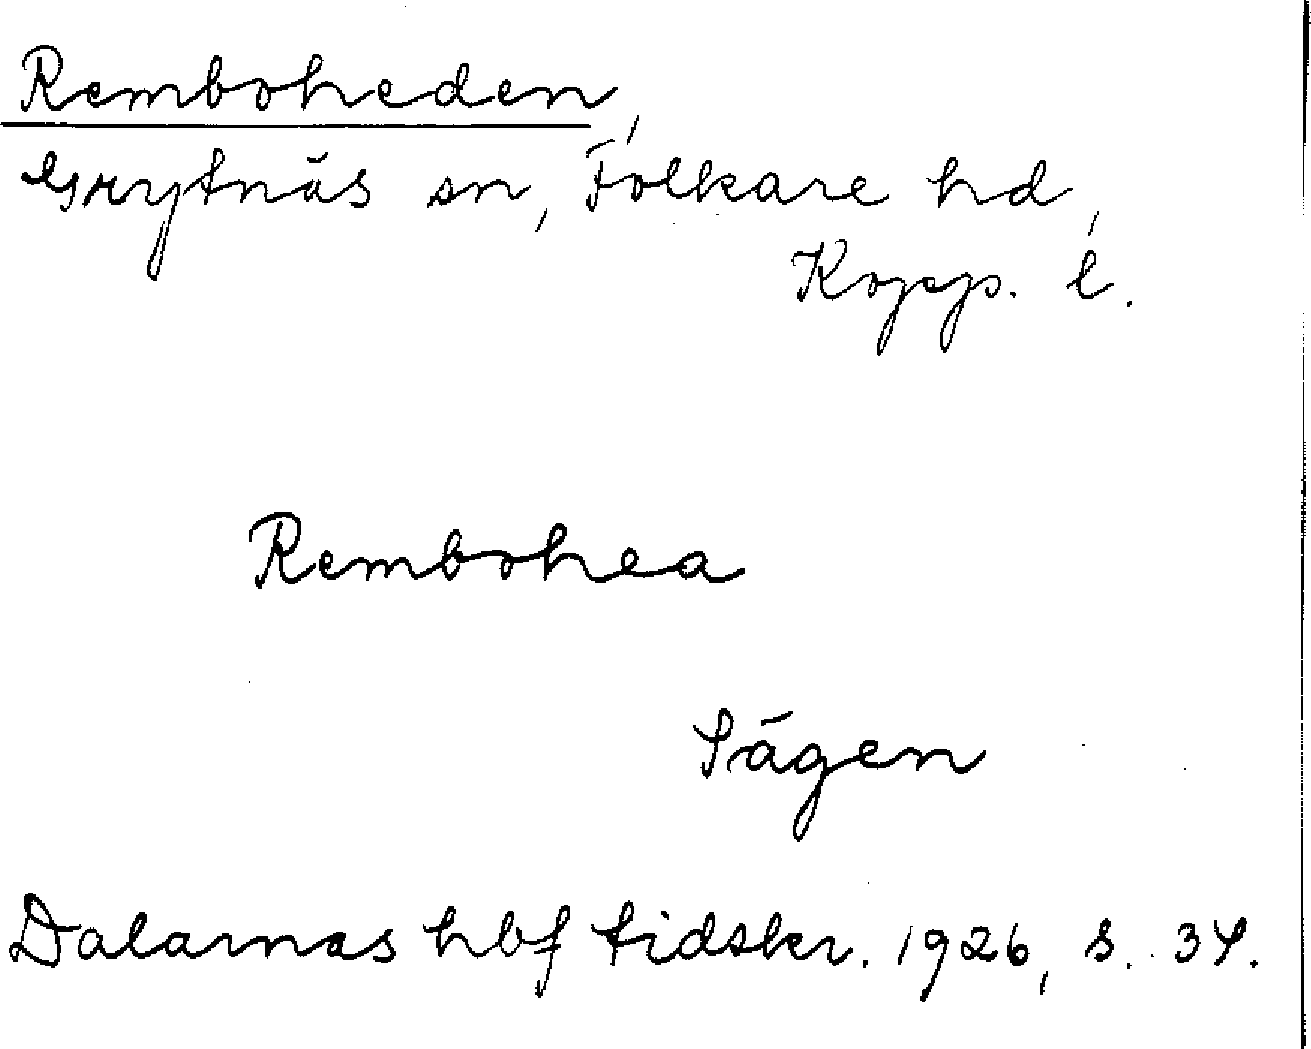 Remboheden,
Grytnäs sn, Folkare hd,
Kopp. l.
Rembohea
Sägen
Dalarnas hbf tidskr. 1926, s. 34.